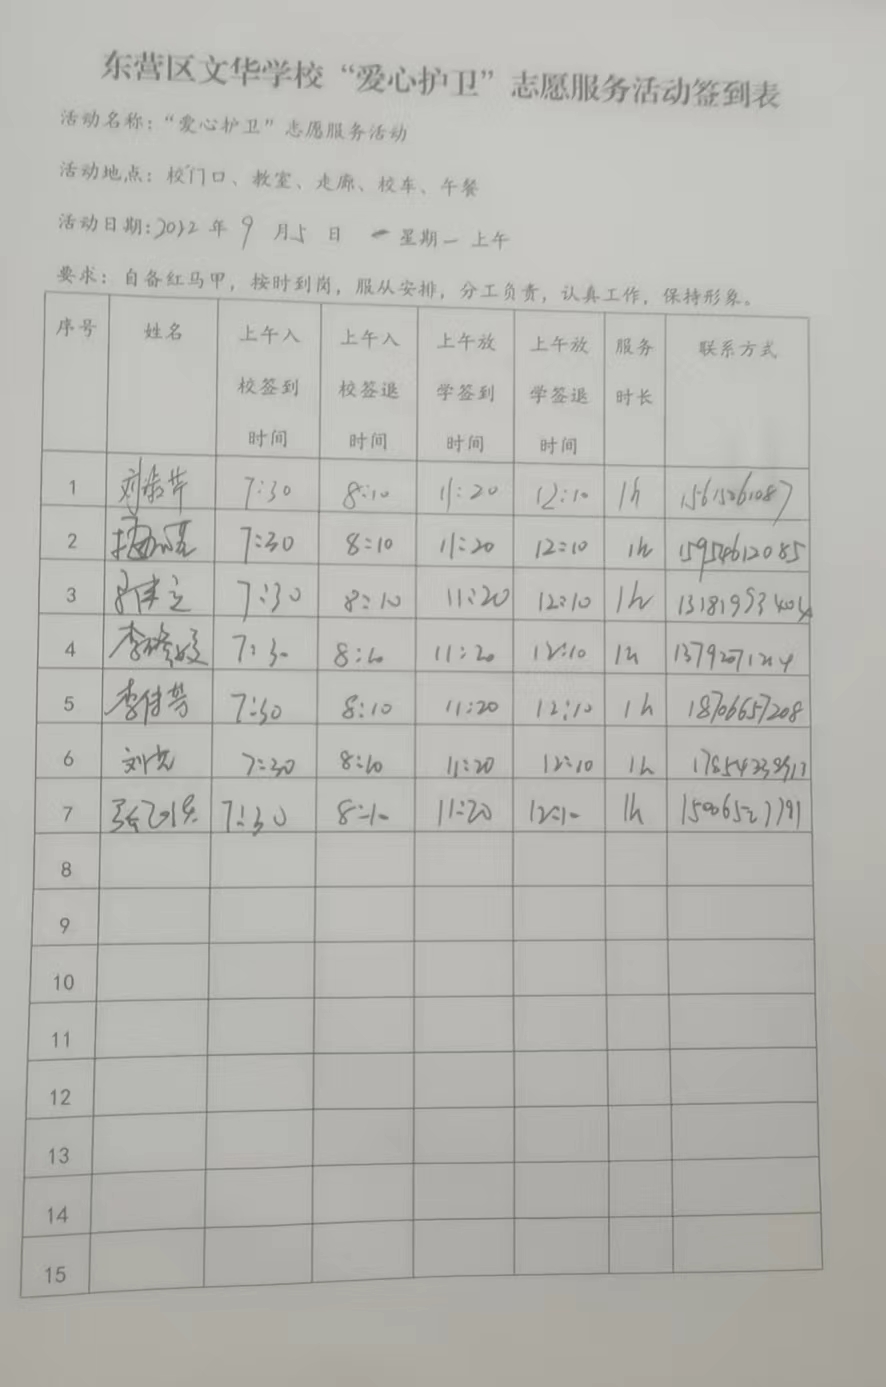 东营区文华学校“爱心护卫”志愿服务活动签到表
活动名称：“爱心护卫”志愿服务活动
活动地点：校门口、教室、走廊、校车、午餐
活动日期：2022 年 9 月 5 日 星期一 上午
要求：自备红马甲，按时到岗，服从安排，分工负责，认真工作，保持形象。
序号 姓名 上午入校签到时间 上午入校签退时间 上午放学签到时间 上午放学签退时间 服务时长 联系方式
1 7:30 8:10 11:20 12:10 1h 15615261087
2 7:30 8:10 11:20 12:10 1h 15954612085
3 7:30 8:10 11:20 12:10 1h
4 7:30 8:10 11:20 12:10 1h
5 李伟芳 7:30 8:10 11:20 12:10 1h 18706657208
6 7:30 8:10 11:20 12:10 1h
7 7:30 8:10 11:20 12:10 1h
8
9
10
11
12
13
14
15